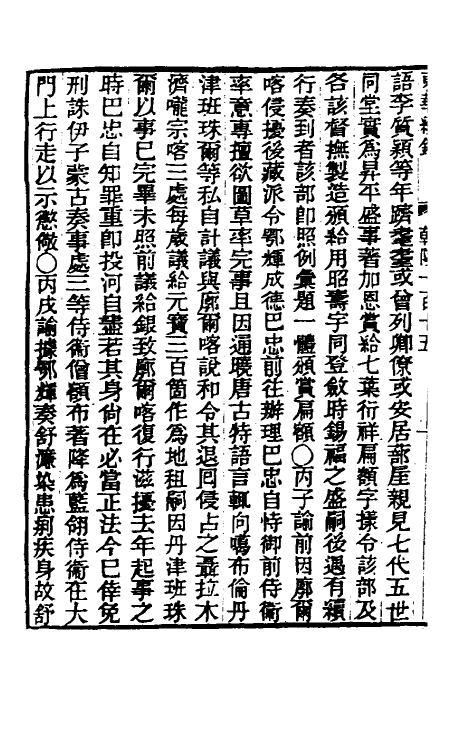 語李質穎等年躋耄耋或曾列卿僚或安居部屋親見七代五世
同堂實為昇平盛事著加恩賞給七葉衍祥扁額字樣令該部及
各該督撫製造頒給用昭壽宇同登斂時錫福之盛嗣後遇有續
行奏到者該部即照例彙題一體頒賞扁額〇丙子諭前因廓爾
喀侵擾後藏派令鄂輝成德巴忠前往辦理巴忠自恃御前侍衞
率意專擅欲圖草率完事且因通曉唐古特語言輒向噶布倫丹
津班珠爾等私自計議與廓爾喀說和令其退囘侵占之聶拉木
濟嚨宗喀三處每歲議給元寶三百箇作為地租嗣因丹津班珠
爾以事已完畢未照前議給銀致廓爾喀復行滋擾去年起事之
時巴忠自知罪重卽投河自盡若其身尚在必當正法今已倖免
刑誅伊子蒙古奏事處三等侍衞僧額布著降為藍翎侍衞在大
門上行走以示懲儆〇丙戌諭據鄂輝奏舒濂染患痢疾身故舒